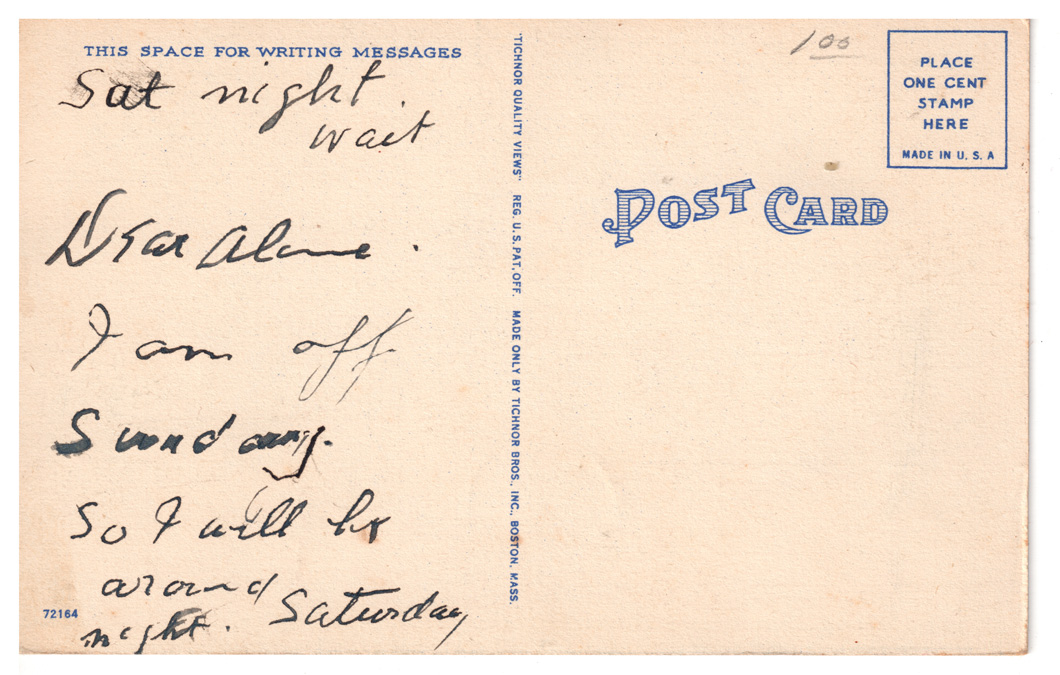 THIS SPACE FOR WRITING MESSAGES
Sat night.
wait
Dear
I am off
Sunday.
So I will be
around Saturday
night.
72164
"TICHNOR QUALITY VIEWS" REG. U. S. PAT. OFF. MADE ONLY BY TICHNOR BROS., INC., BOSTON, MASS.
100
PLACE
ONE CENT
STAMP
HERE
MADE IN U. S. A
POST CARD